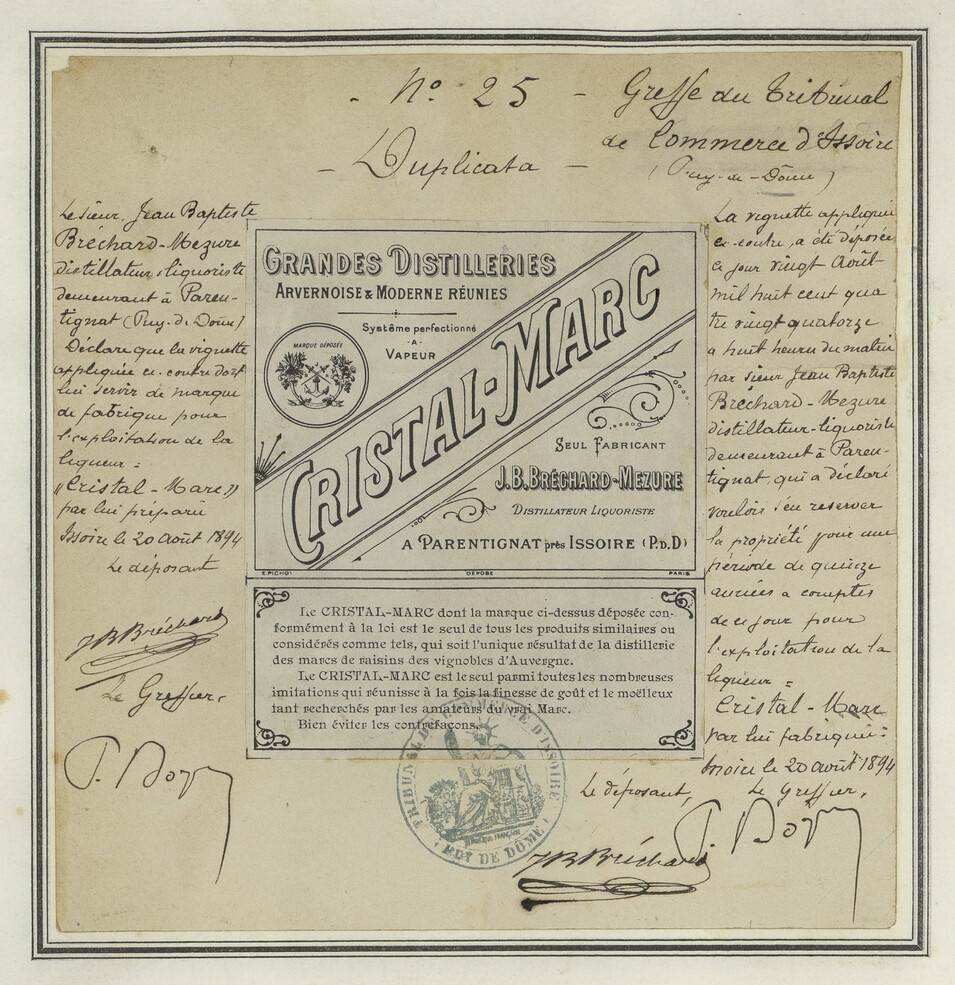 N° 25 - Greffe du Tribunal
de Commerce d'Issoire
- Duplicata - (Puy-de-Dôme)
Le sieur, Jean Baptiste
Bréchard-Mezure
distillateur-liquoriste
demeurant à Paren-
tignat (Puy-de-Dôme)
Déclare que la vignette
appliquée ci-contre doit
lui servir de marque
de fabrique pour
l'exploitation de la
liqueur =
"Cristal-Marc"
par lui préparée
Issoire le 20 août 1894
Le déposant
JB Bréchard
Le Greffier,
GRANDES DISTILLERIES
ARVERNOISE & MODERNE RÉUNIES
Système perfectionné
-A-
VAPEUR
MARQUE DÉPOSÉE
CRISTAL-MARC
SEUL FABRICANT
J.B. BRÉCHARD-MEZURE
DISTILLATEUR LIQUORISTE
A PARENTIGNAT près ISSOIRE (P.D.D)
E. PICHOT DÉPOSÉ PARIS
Le CRISTAL-MARC dont la marque ci-dessus déposée con-
formément à la loi est le seul de tous les produits similaires ou
considérés comme tels, qui soit l'unique résultat de la distillerie
des marcs de raisins des vignobles d'Auvergne.
Le CRISTAL-MARC est le seul parmi toutes les nombreuses
imitations qui réunisse à la fois la finesse de goût et le moëlleux
tant recherchés par les amateurs du vrai Marc.
Bien éviter les contrefaçons.
TRIBUNAL DE COMMERCE D'ISSOIRE
PUY DE DÔME
La vignette appliquée
ci-contre, a été déposée
ce jour vingt Août
mil huit cent qua
tre vingt quatorze
a huit heures du matin
par sieur Jean Baptiste
Bréchard-Mezure
distillateur-liquoriste
demeurant à Paren-
tignat, qui a déclaré
vouloir s'en reserver
la propriété pour une
période de quinze
années a compter
de ce jour pour
l'exploitation de la
liqueur =
Cristal-Marc
par lui fabriquée:
Issoire le 20 août 1894
Le déposant, Le Greffier,
JB Bréchard